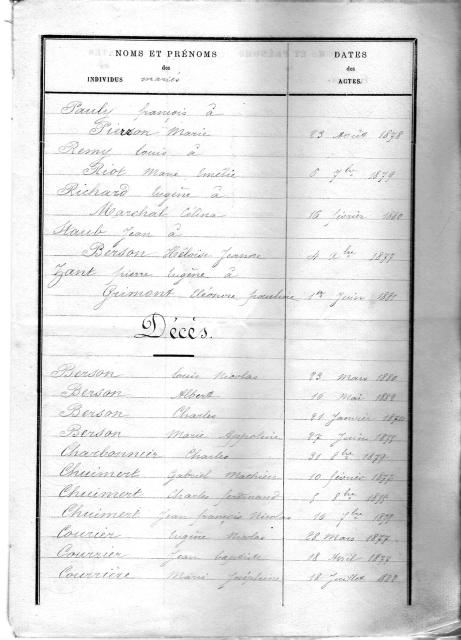 NOMS ET PRÉNOMS
des
INDIVIDUS mariés
DATES
des
ACTES.
Pauly françois à
Pierson Marie 23 Août 1878
Remy Louis à
Riot Marie Emélie 8 7bre 1879
Richard Eugène à
Marchal Célina 16 février 1880
Staub Jean à
Berson Héloïse Jeanne 4 1877
Zant pierre Eugène à
Grimont Eléonore pauline 1er Juin 1881
Décés.
Berson Louis Nicolas 23 Mars 1880
Berson Albert 16 Mai 1882
Berson Charles 21 Janvier
Berson Marie Appoline 27 Juin
Charbonnier Charles 31 8bre 1879
Chuimert Gabriel Mathieu 10 février
Chuimert Charles ferdinand 8 8bre
Chuimert Jean françois Nicolas 16 7bre
Courier Eugène Nicolas 28 Mars 1877
Courrier Jean baptiste 18 Avril
Courrière Marie Joséphine 18 Juillet 1882